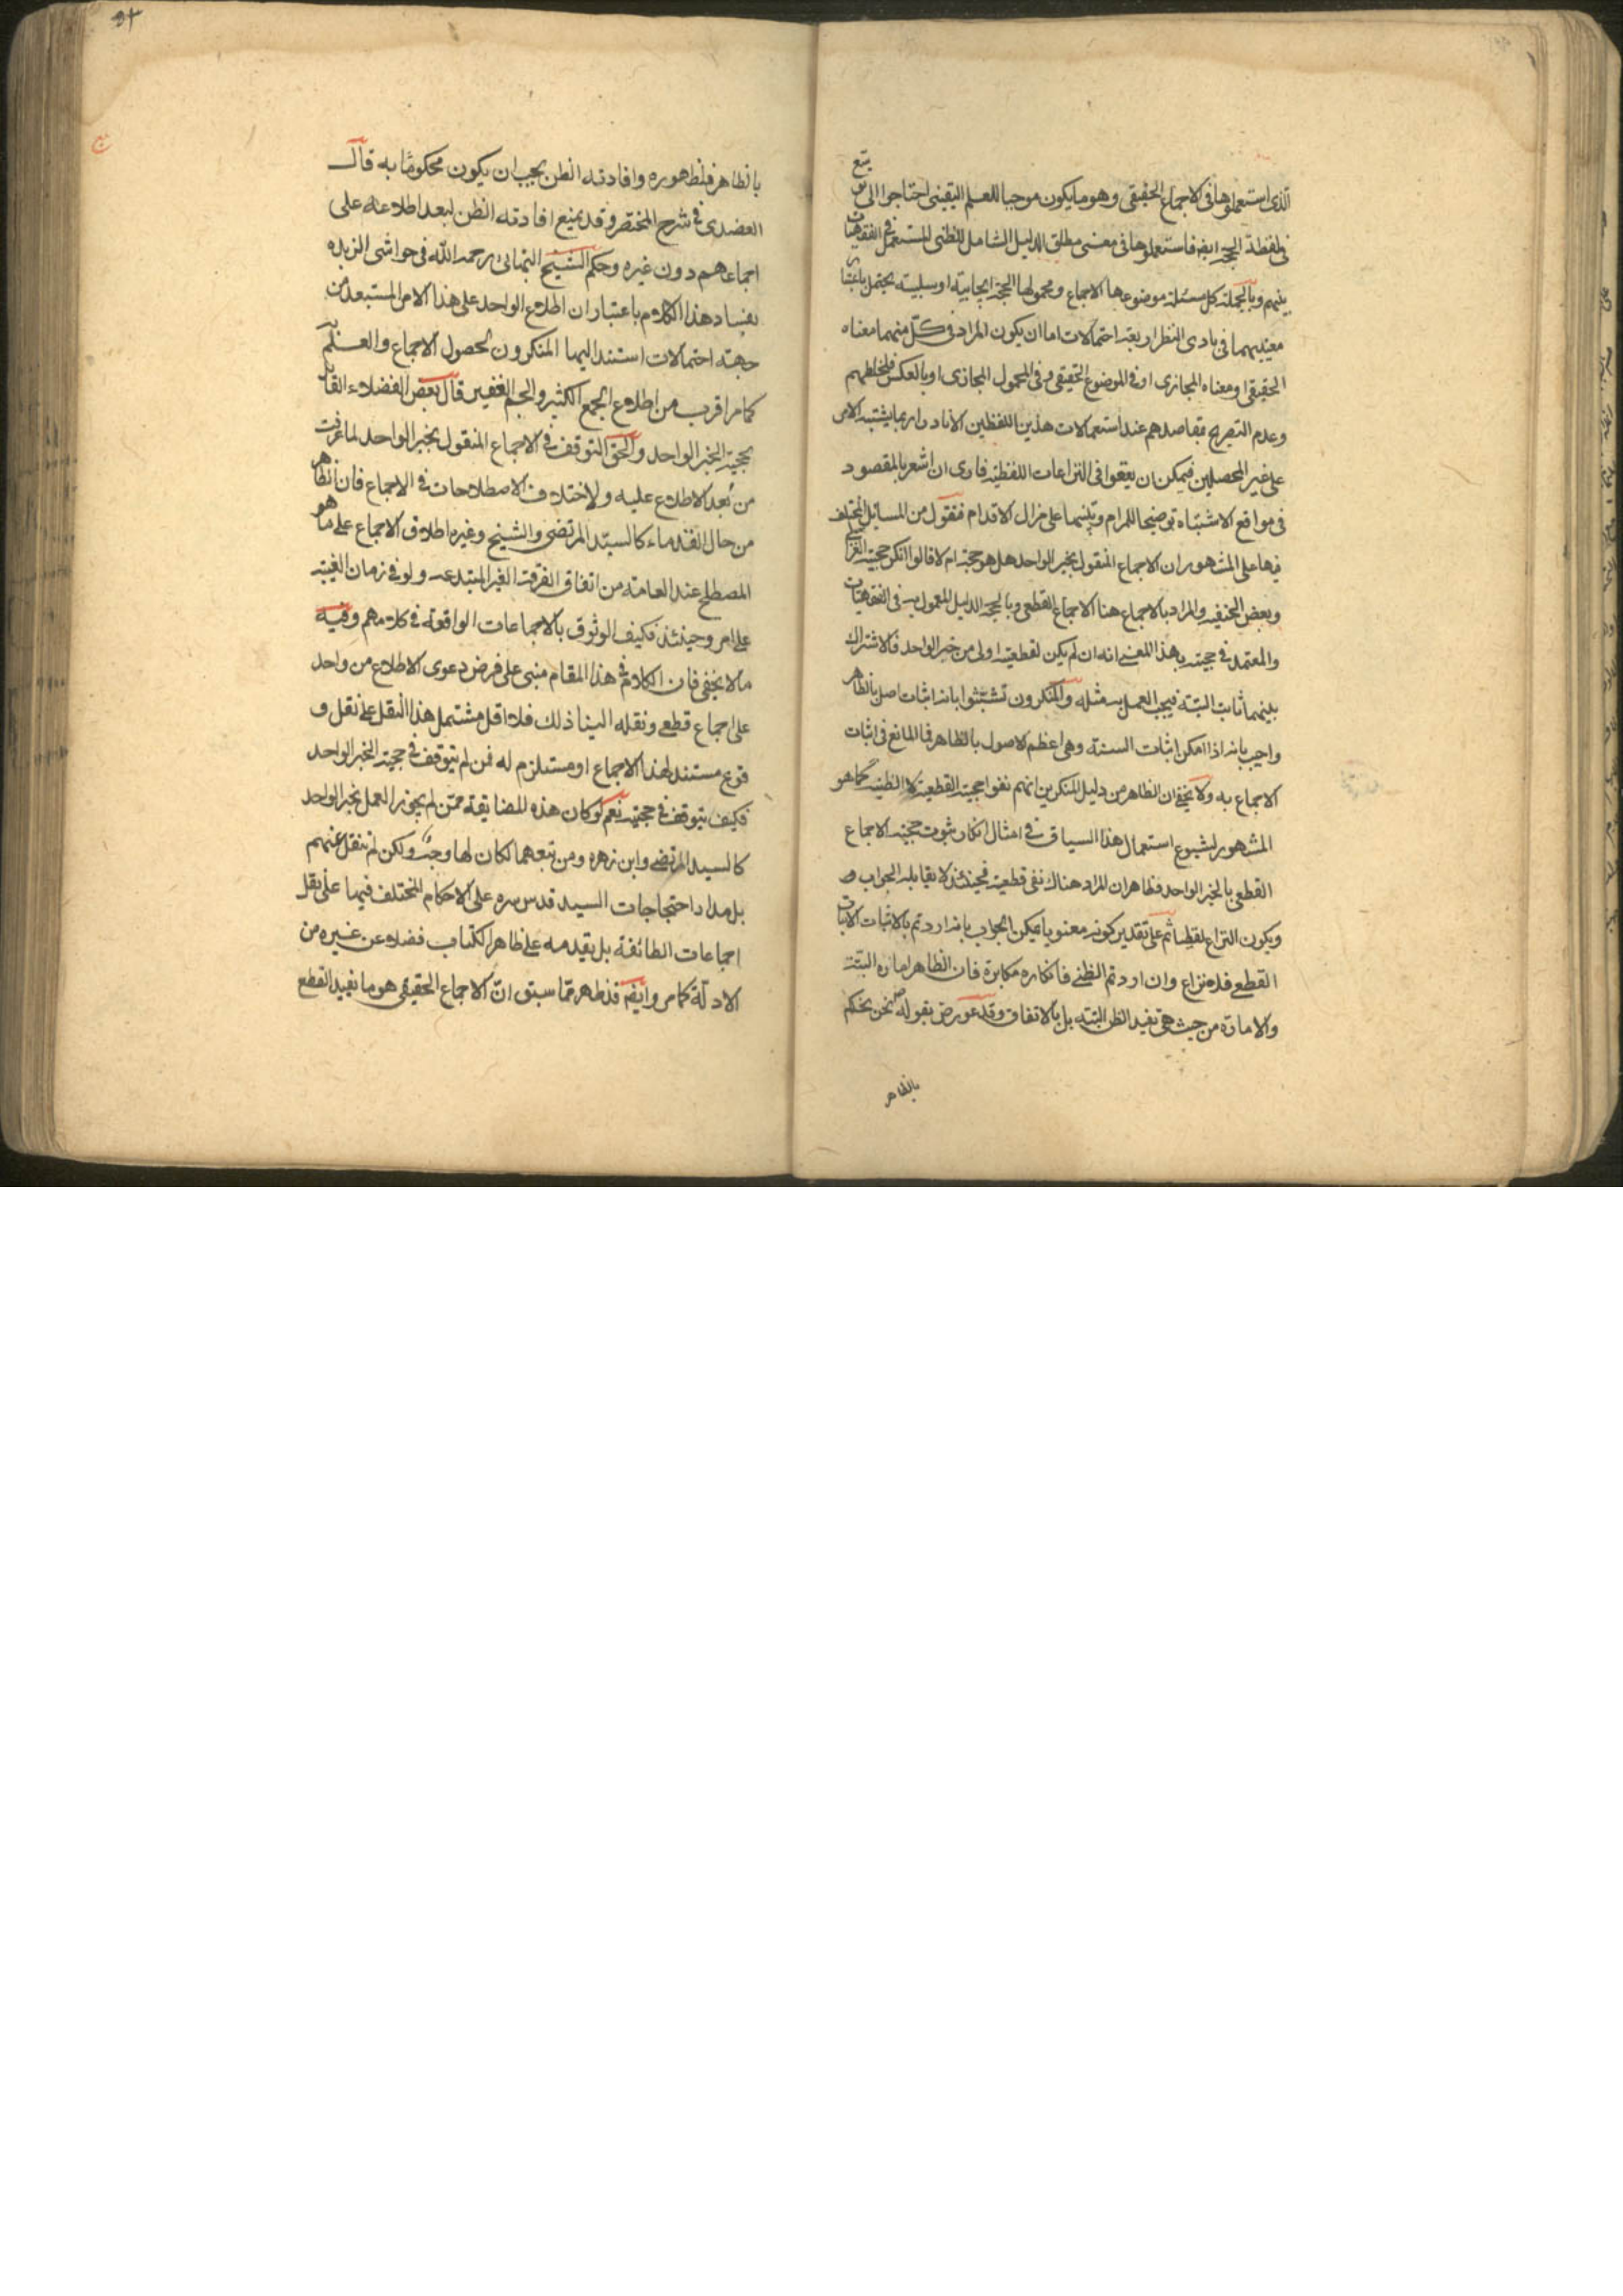 الذى استعملوها فى الاجماع الحقيقى وهو ما يكون موجبا للعلم اليقينى احتاجوا الى
فى لفظة الحجة ايضا فاستعملوها فى معنى مطلق الدليل الشامل للظنى المستعمل فى الفقهيات
بينهم وبالجملة كل مسئلة موضوعها الاجماع ومحمولها الحجة ايجابية او سلبية يحتمل باعتبار
معنييهما فى بادى النظر اربعة احتمالات اما ان يكون المراد فى كل منهما معناه
الحقيقى او معناه المجازى او فى الموضوع الحقيقى وفى المحمول المجازى او بالعكس فلخلطهم
وعدم التصريح بمقاصدهم عند استعمالات هذين اللفظين الا نادرا ربما يشتبه الامر
على غير المحصلين فيمكن ان يقعوا فى النزاعات اللفظية فارى ان اشعر بالمقصود
فى مواقع الاشتباه توضيحا للمرام وتنبيها على مزال الاقدام فنقول من المسائل المختلف
فيها على المشهور ان الاجماع المنقول بخبر الواحد هل هو حجة ام لا قالوا انكر حجيته الغزالى
وبعض الحنفية والمراد بالاجماع هنا الاجماع القطعى وبالحجة الدليل المعمول به فى الفقهيات
والمعتمد فى حجيته بهذا المعنى انه ان لم يكن لقطعيته اولى من خبر الواحد فالاشتراك
بينهما ثابت البتة فيجب العمل بمثله والمنكرون تشبثوا بانه اثبات اصل بالظاهر
واجيب بانه اذا امكن اثبات السنة وهى اعظم الاصول بالظاهر فما المانع فى اثبات
الاجماع به ولا يخفى ان الظاهر من دليل المنكرين انهم نفوا حجيته القطعية لا الظنية كما هو
المشهور لشيوع استعمال هذا السياق فى امثال انكار ثبوت حجية الاجماع
القطعى بالخبر الواحد فظاهر ان المراد هناك نفى قطعيته فحينئذ لا يقابله الجواب و
ويكون النزاع لفظيا ثم على تقدير كونه معنويا يمكن الجواب بانه ان اردتم بالاثبات الاثبات
القطعى فلا نزاع وان اردتم الظنى فانكاره مكابرة فان الظاهر امارة البتة
والامارة من حيث هى تفيد الظن البتة بل بالاتفاق وقد عورض بقوله نحن نحكم
بالظاهر
بالظاهر فلظهوره وافادته الظن يجب ان يكون محكوما به قال
العضدى فى شرح المختصر وقد يمنع افادته الظن لبعد اطلاعه على
اجماعهم دون غيره وحكم الشيخ البهائى رحمه الله فى حواشى الزبده
بفساد هذا الكلام باعتبار ان اطلاع الواحد على هذا الامر المستبعد من
جهة احتمالات استند اليها المنكرون لحصول الاجماع والعلم
كما مر اقرب من اطلاع الجمع الكثير والجم الغفير قال بعض الفضلاء القائل
بحجية الخبر الواحد والحق التوقف فى الاجماع المنقول بخبر الواحد لما عرفت
من بعد الاطلاع عليه ولاختلاف الاصطلاحات فى الاجماع فان الظاهر
من حال القدماء كالسيد المرتضى والشيخ وغيره اطلاق الاجماع على ما هو
المصطلح عند العامة من اتفاق الفرقة الغير المبتدعه ولو فى زمان الغيبة
على امر وحينئذ فكيف الوثوق بالاجماعات الواقعة فى كلامهم وفيه
ما لا يخفى فان الكلام فى هذا المقام مبنى على فرض دعوى الاطلاع من واحد
على اجماع قطعى ونقله الينا ذلك فلا اقل مشتمل هذا النقل على نقل و
فرع مستند لهذا الاجماع او مستلزم له فمن لم يتوقف فى حجية الخبر الواحد
فكيف يتوقف فى حجيته نعم لو كان هذه المضايقة ممن لم يجوز العمل بخبر الواحد
كالسيد المرتضى وابن زهره ومن تبعهما لكان لها وجه ولكن لم ينقل عنهم
بل مدار احتجاجات السيد قدس سره على الاحكام المختلف فيها على نقل
اجماعات الطائفة بل يقدمه على ظاهر الكتاب فضلا عن غيره من
الادلة كما مر وايضا فظاهر مما سبق ان الاجماع الحقيقى هو ما يفيد القطع